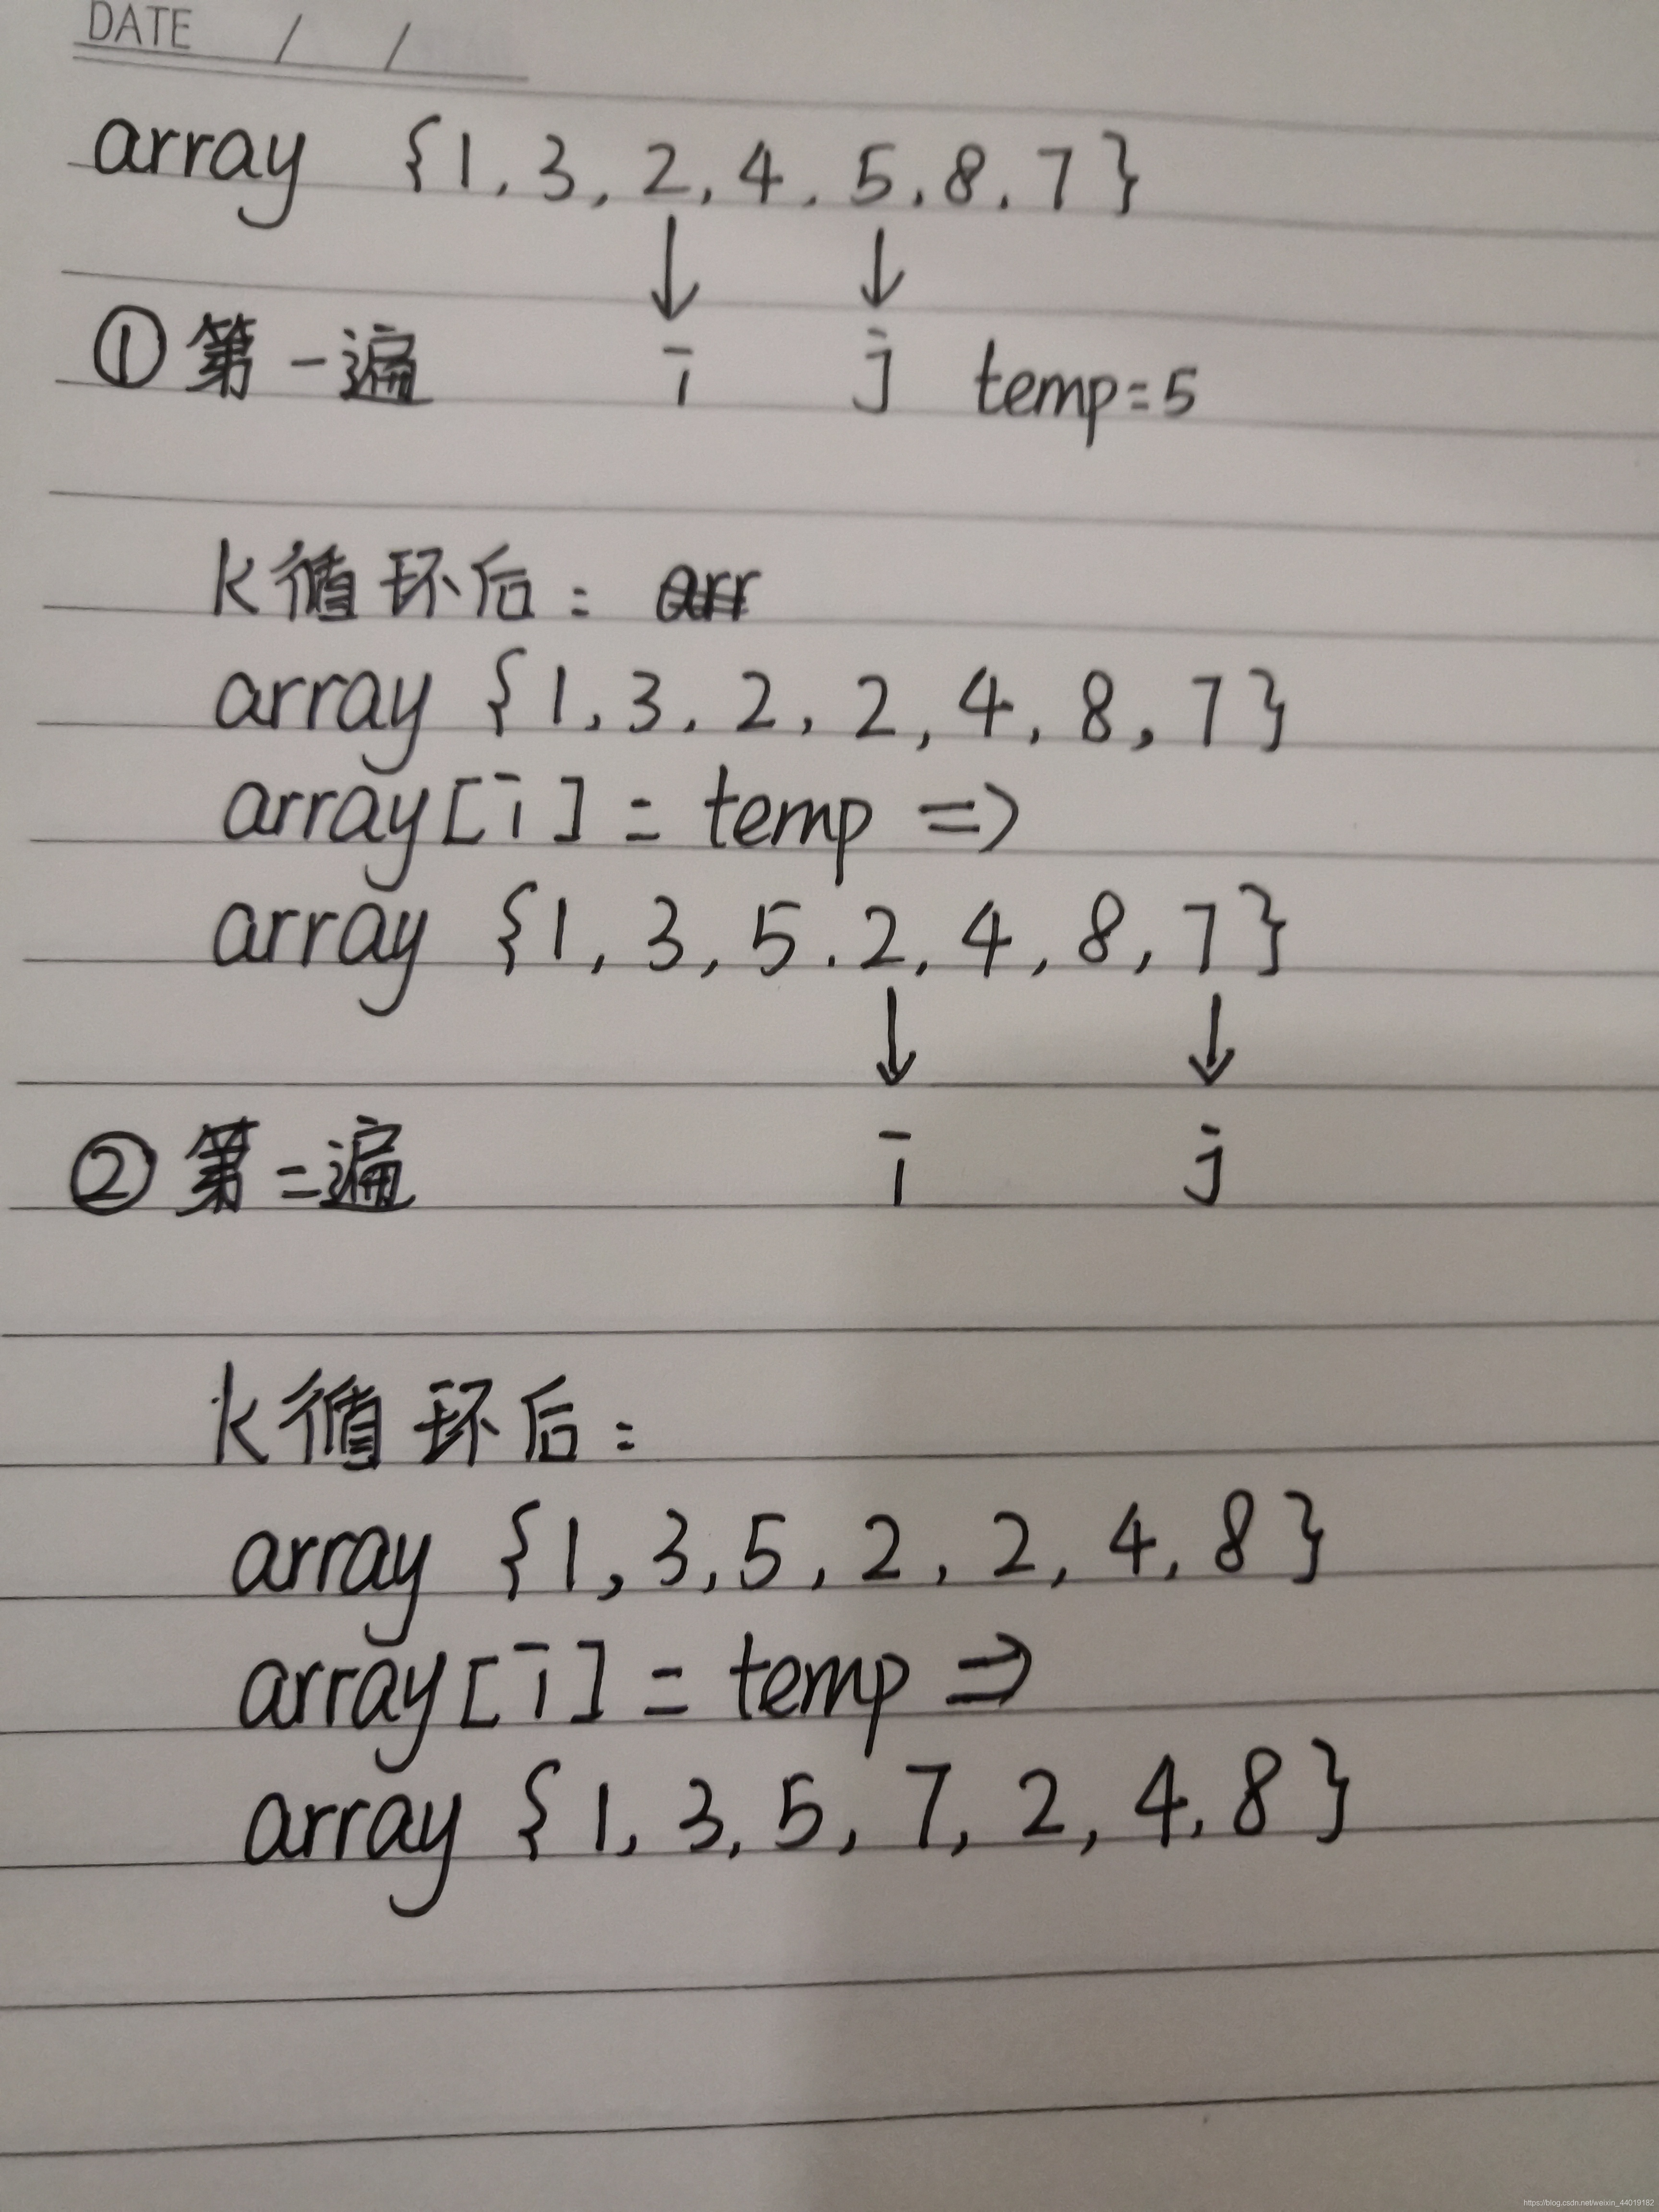 DATE / /
array {1, 3, 2, 4, 5, 8, 7}
①第一遍 i j temp=5
k循环后: arr
array {1, 3, 2, 2, 4, 8, 7}
array[i] = temp =>
array {1, 3, 5, 2, 4, 8, 7}
②第二遍 i j
k循环后:
array {1, 3, 5, 2, 2, 4, 8}
array[i] = temp =>
array {1, 3, 5, 7, 2, 4, 8}
https://blog.csdn.net/weixin_44019182